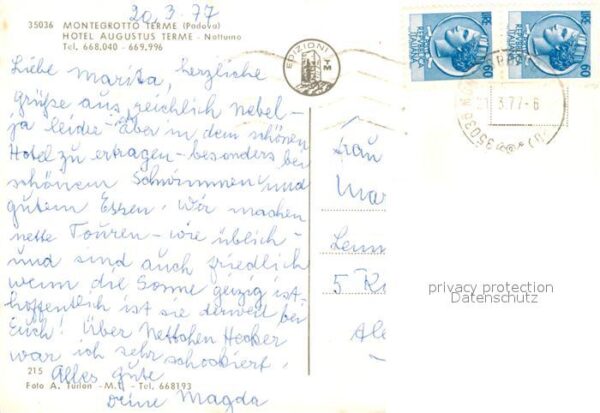 20.3.77
35036 MONTEGROTTO TERME (Padova)
HOTEL AUGUSTUS TERME - Notturno
Tel. 668.040 - 669.996
EDIZIONI
TM
Liebe Marita, herzliche
Grüße aus, reichlich Nebel-
ja leider Aber in dem schönen
Hotel zu ertragen - besonders bei
schönem Schwimmen und
gutem Essen. Wir machen
nette Touren - wie üblich -
und sind auch friedlich
wenn die Sonne geizig ist.
hoffentlich ist sie derweil bei
Euch! Über Hecker
war ich sehr schockiert.
Alles gute
Deine Magda
215
Foto A. Turlon - M.T. - Tel. 668193
Frau
Mar
5 K
Ale
privacy protection
Datenschutz
3.77-
35036